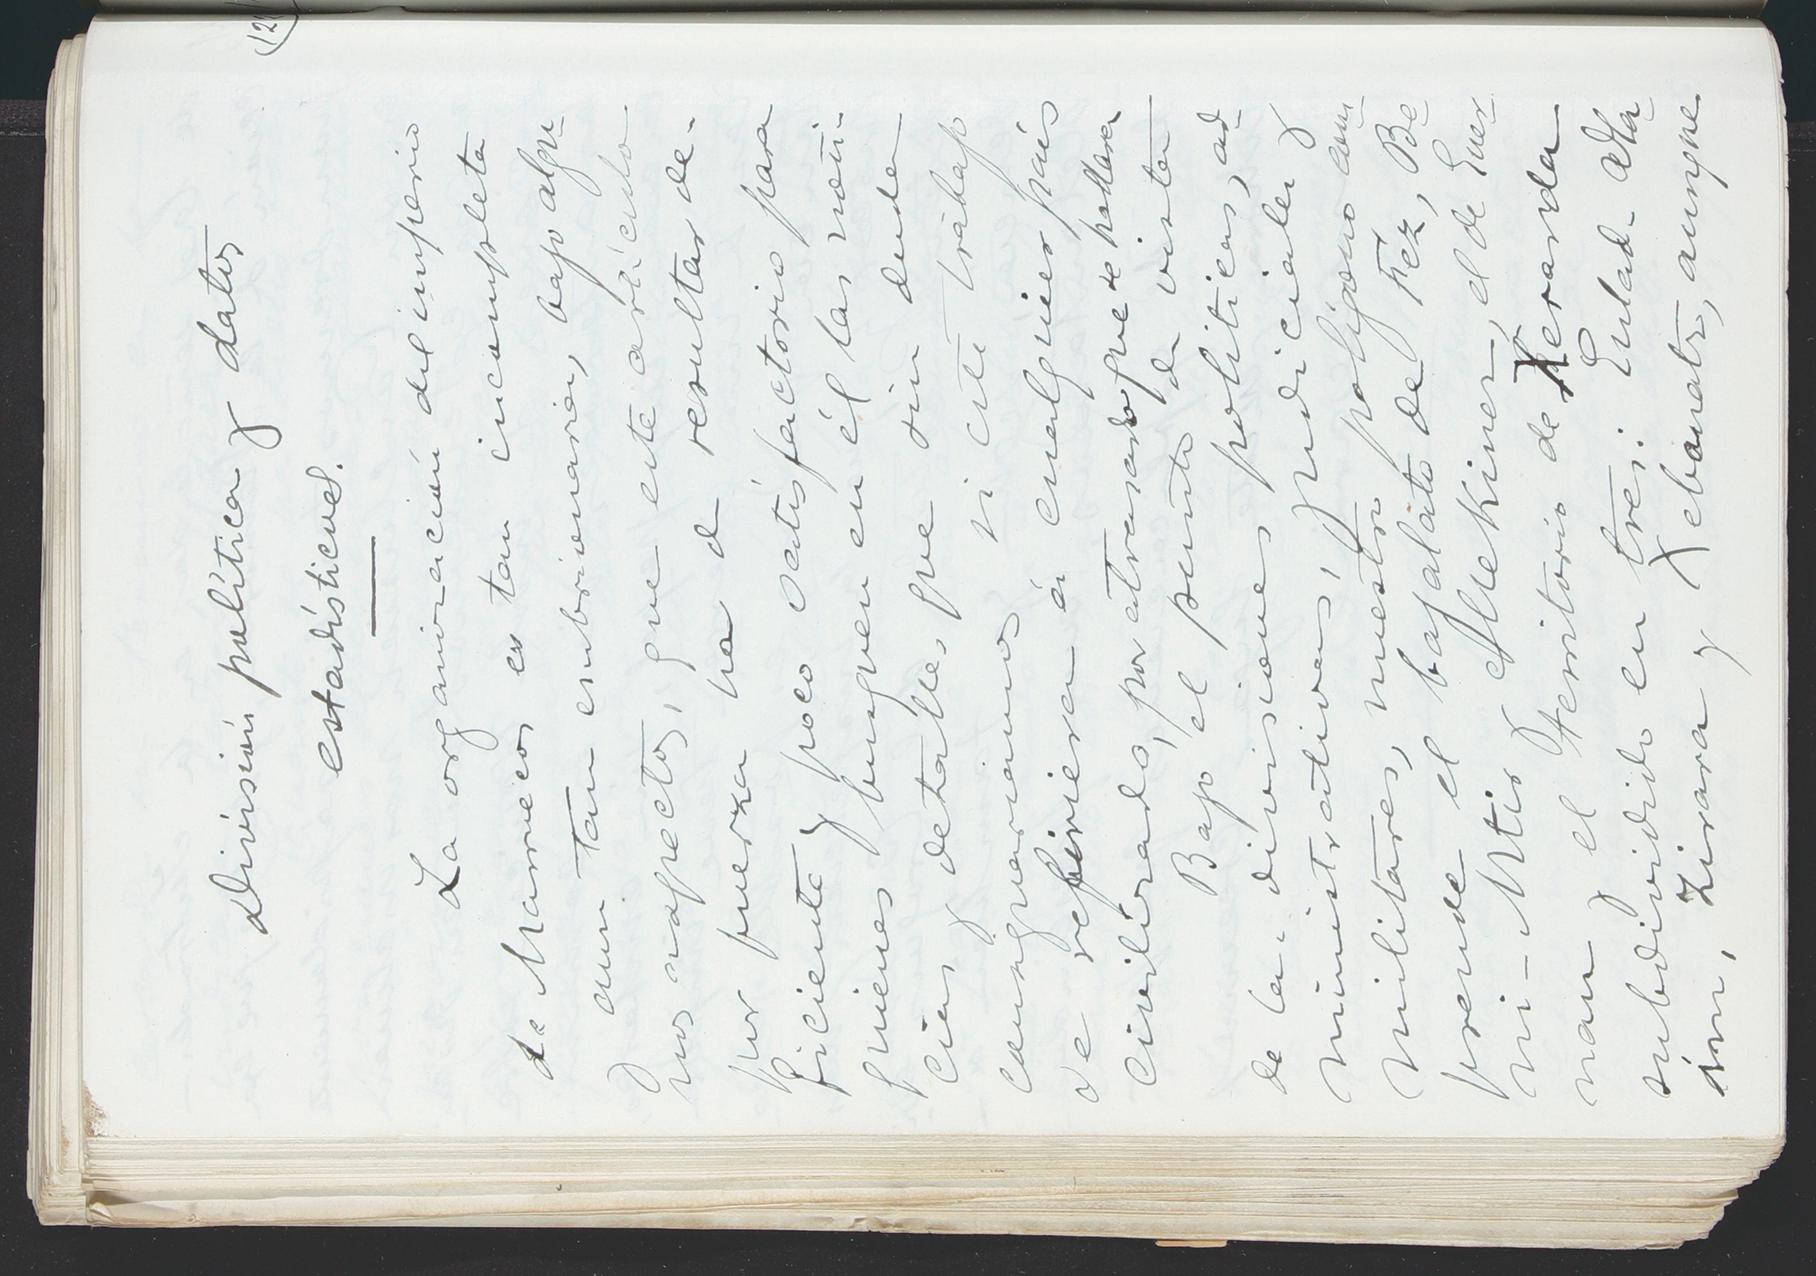 División política y datos
estadísticos.
La organización del imperio
de Marruecos es tan incompleta
aun tan embrionaria, bajo algu
nos aspectos, que este artículo
por fuerza ha d resultar de-
ficiente y poco satisfactorio para
quienes busquen en él las noti-
cias y detalles que sin duda
consignaríamos si este trabajo
se refiriera á cualquier país
civilizado, por atrasado que se hallara
Bajo el punto de vista
de las divisiones políticas, ad
ministrativas, judiciales y
militares, nuestro polígono com
prende el bajalato de Féz, Be
ni-Mtir y Mekinez, el de Guer
nan y el territorio de Xeranda
subdividido en tres: Eulad-
Zirara y Xebanatz, aunque